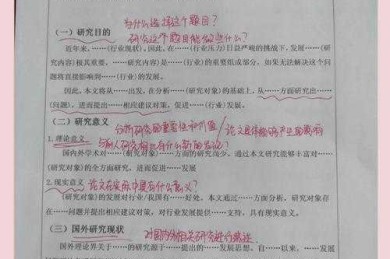 为什么选择这个题目？
（一）研究目的 研究这个题目能做些什么？
近年来，……（行业现状），因此，在……（行业压力）日益严峻的挑战下，发展……（研
究内容）极其重要。……（研究内容）是……（行业）的重要组成部分，如果无法解决这个问
题将直接影响到……（行业）的发展。
因此，本文将从……出发，在分析……（研究对象）的基础上，从……方面研究出……
（问题），进而提出……相应建议对策，促进……（行业）发展。
（二）研究意义
1.理论意义：
国内外学术对……（研究对象）……方面的研究较少，通过本文研究能够丰富对……
（研究对象）的全方面研究，进而促进……发展
2.现实意义 论文在实际中是有什么意义？
（研究对象）的发展对行业/我国有……好处，本文通过……方面分析，研究对象存
在……问题并提出相应建议对策，对行业发展提供……支持，具有现实意义。
（三）国外研究现状 对国内外相关研究进行综述
国外理论界关于……的研究源于……提出的……发展思想，自……以来，……发展